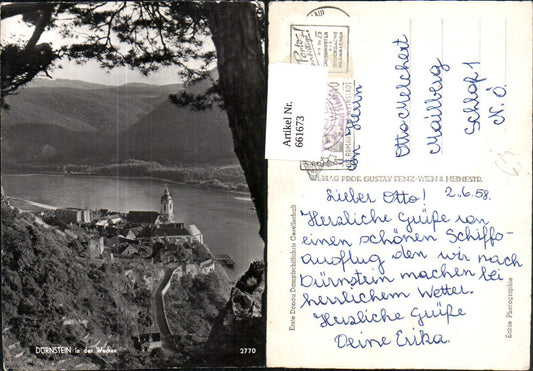 DÜRNSTEIN in der Wachau
2770
Artikel Nr.
661673
An Herrn
Otto Melchert
Mailberg
Schloß 1
N.Ö.
VERLAG PROF. GUSTAV
WIEN 8, HEINESTR.
Erste Donau Dampfschiffahrts Gesellschaft
Lieber Otto! 2.6.58.
Herzliche Grüße von
einen schönen Schiffs-
ausflug den wir nach
Dürnstein machen bei
herrlichem Wetter.
Herzliche Grüße
Deine Erika.
Echte Photographie